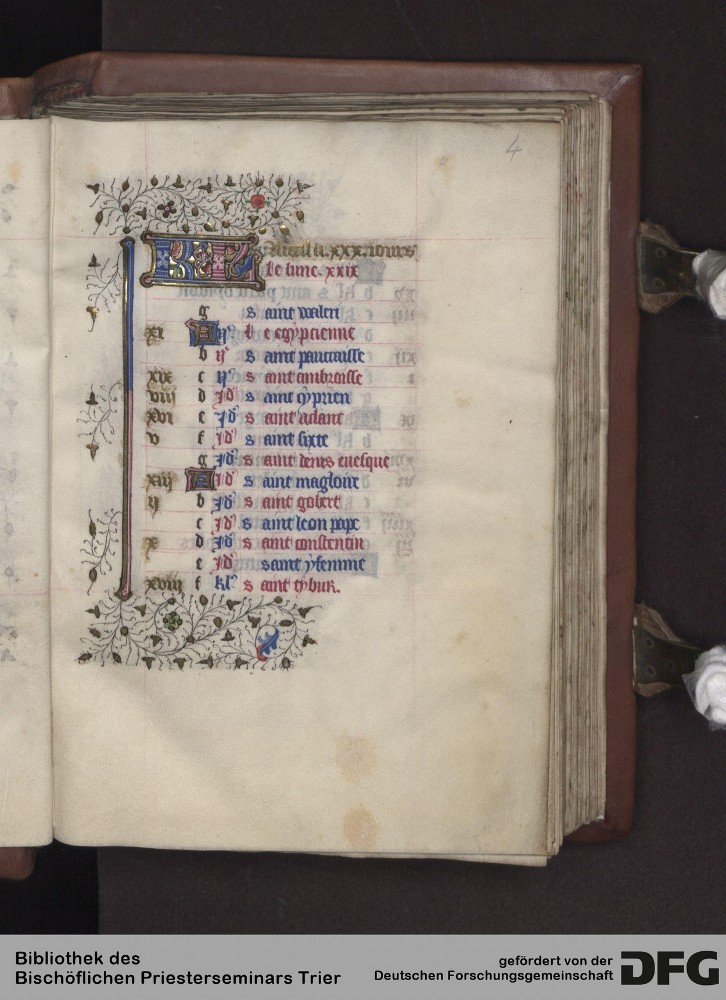 4
Auril a. xxx. iours
le lune. xxix
g s aint waleri
xi A iiijº b e egyptienne
b iijº s aint pancrasse
xix c ijº s aint ambroisse
viij d Jdº s aint cyprien
xvi e Jdº s aint
v f Jdº s aint sixte
g Jdº s aint denis euesque
xiij A Jdº s aint magloire
ij b Jdº s aint gobert
c Jdº s aint leon pape
x d Jdº s aint constentin
e Jdº saint
xviij f klº s aint tybur.
Bibliothek des
Bischöflichen Priesterseminars Trier
gefördert von der
Deutschen Forschungsgemeinschaft
DFG